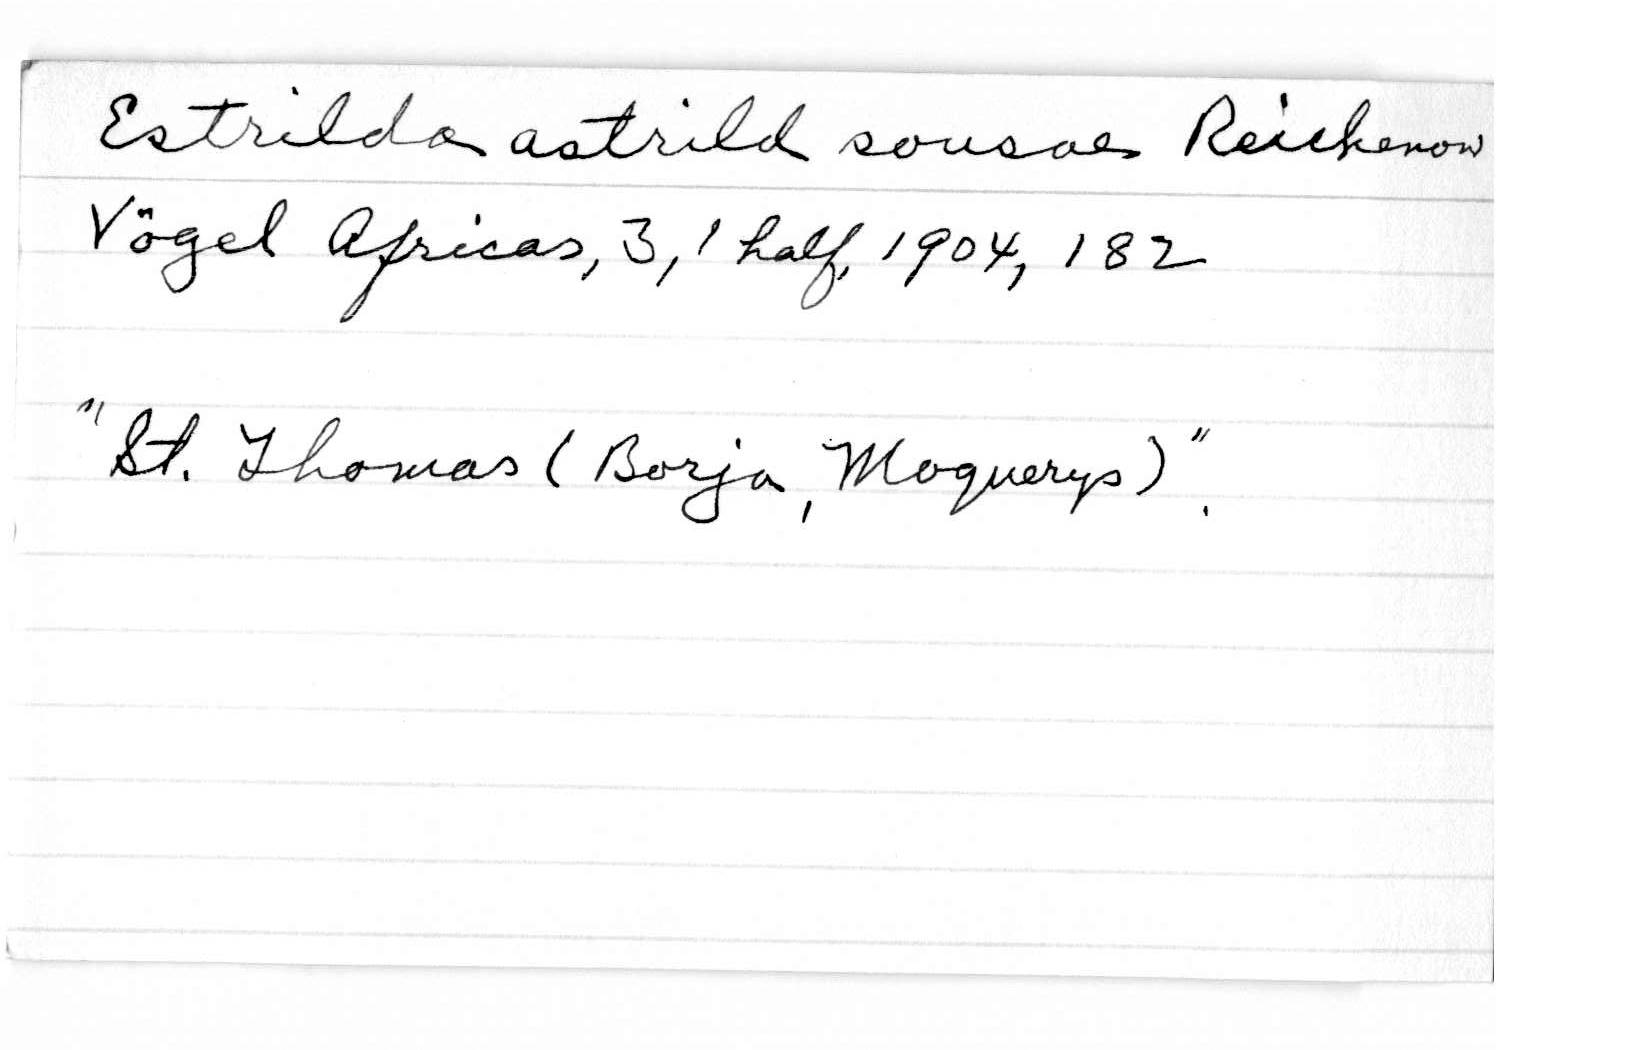 Estrilda astrild sousae Reichenow
Vögel Africas, 3, 1 half, 1904, 182
"St. Thomas (Borja, Moquerys)".